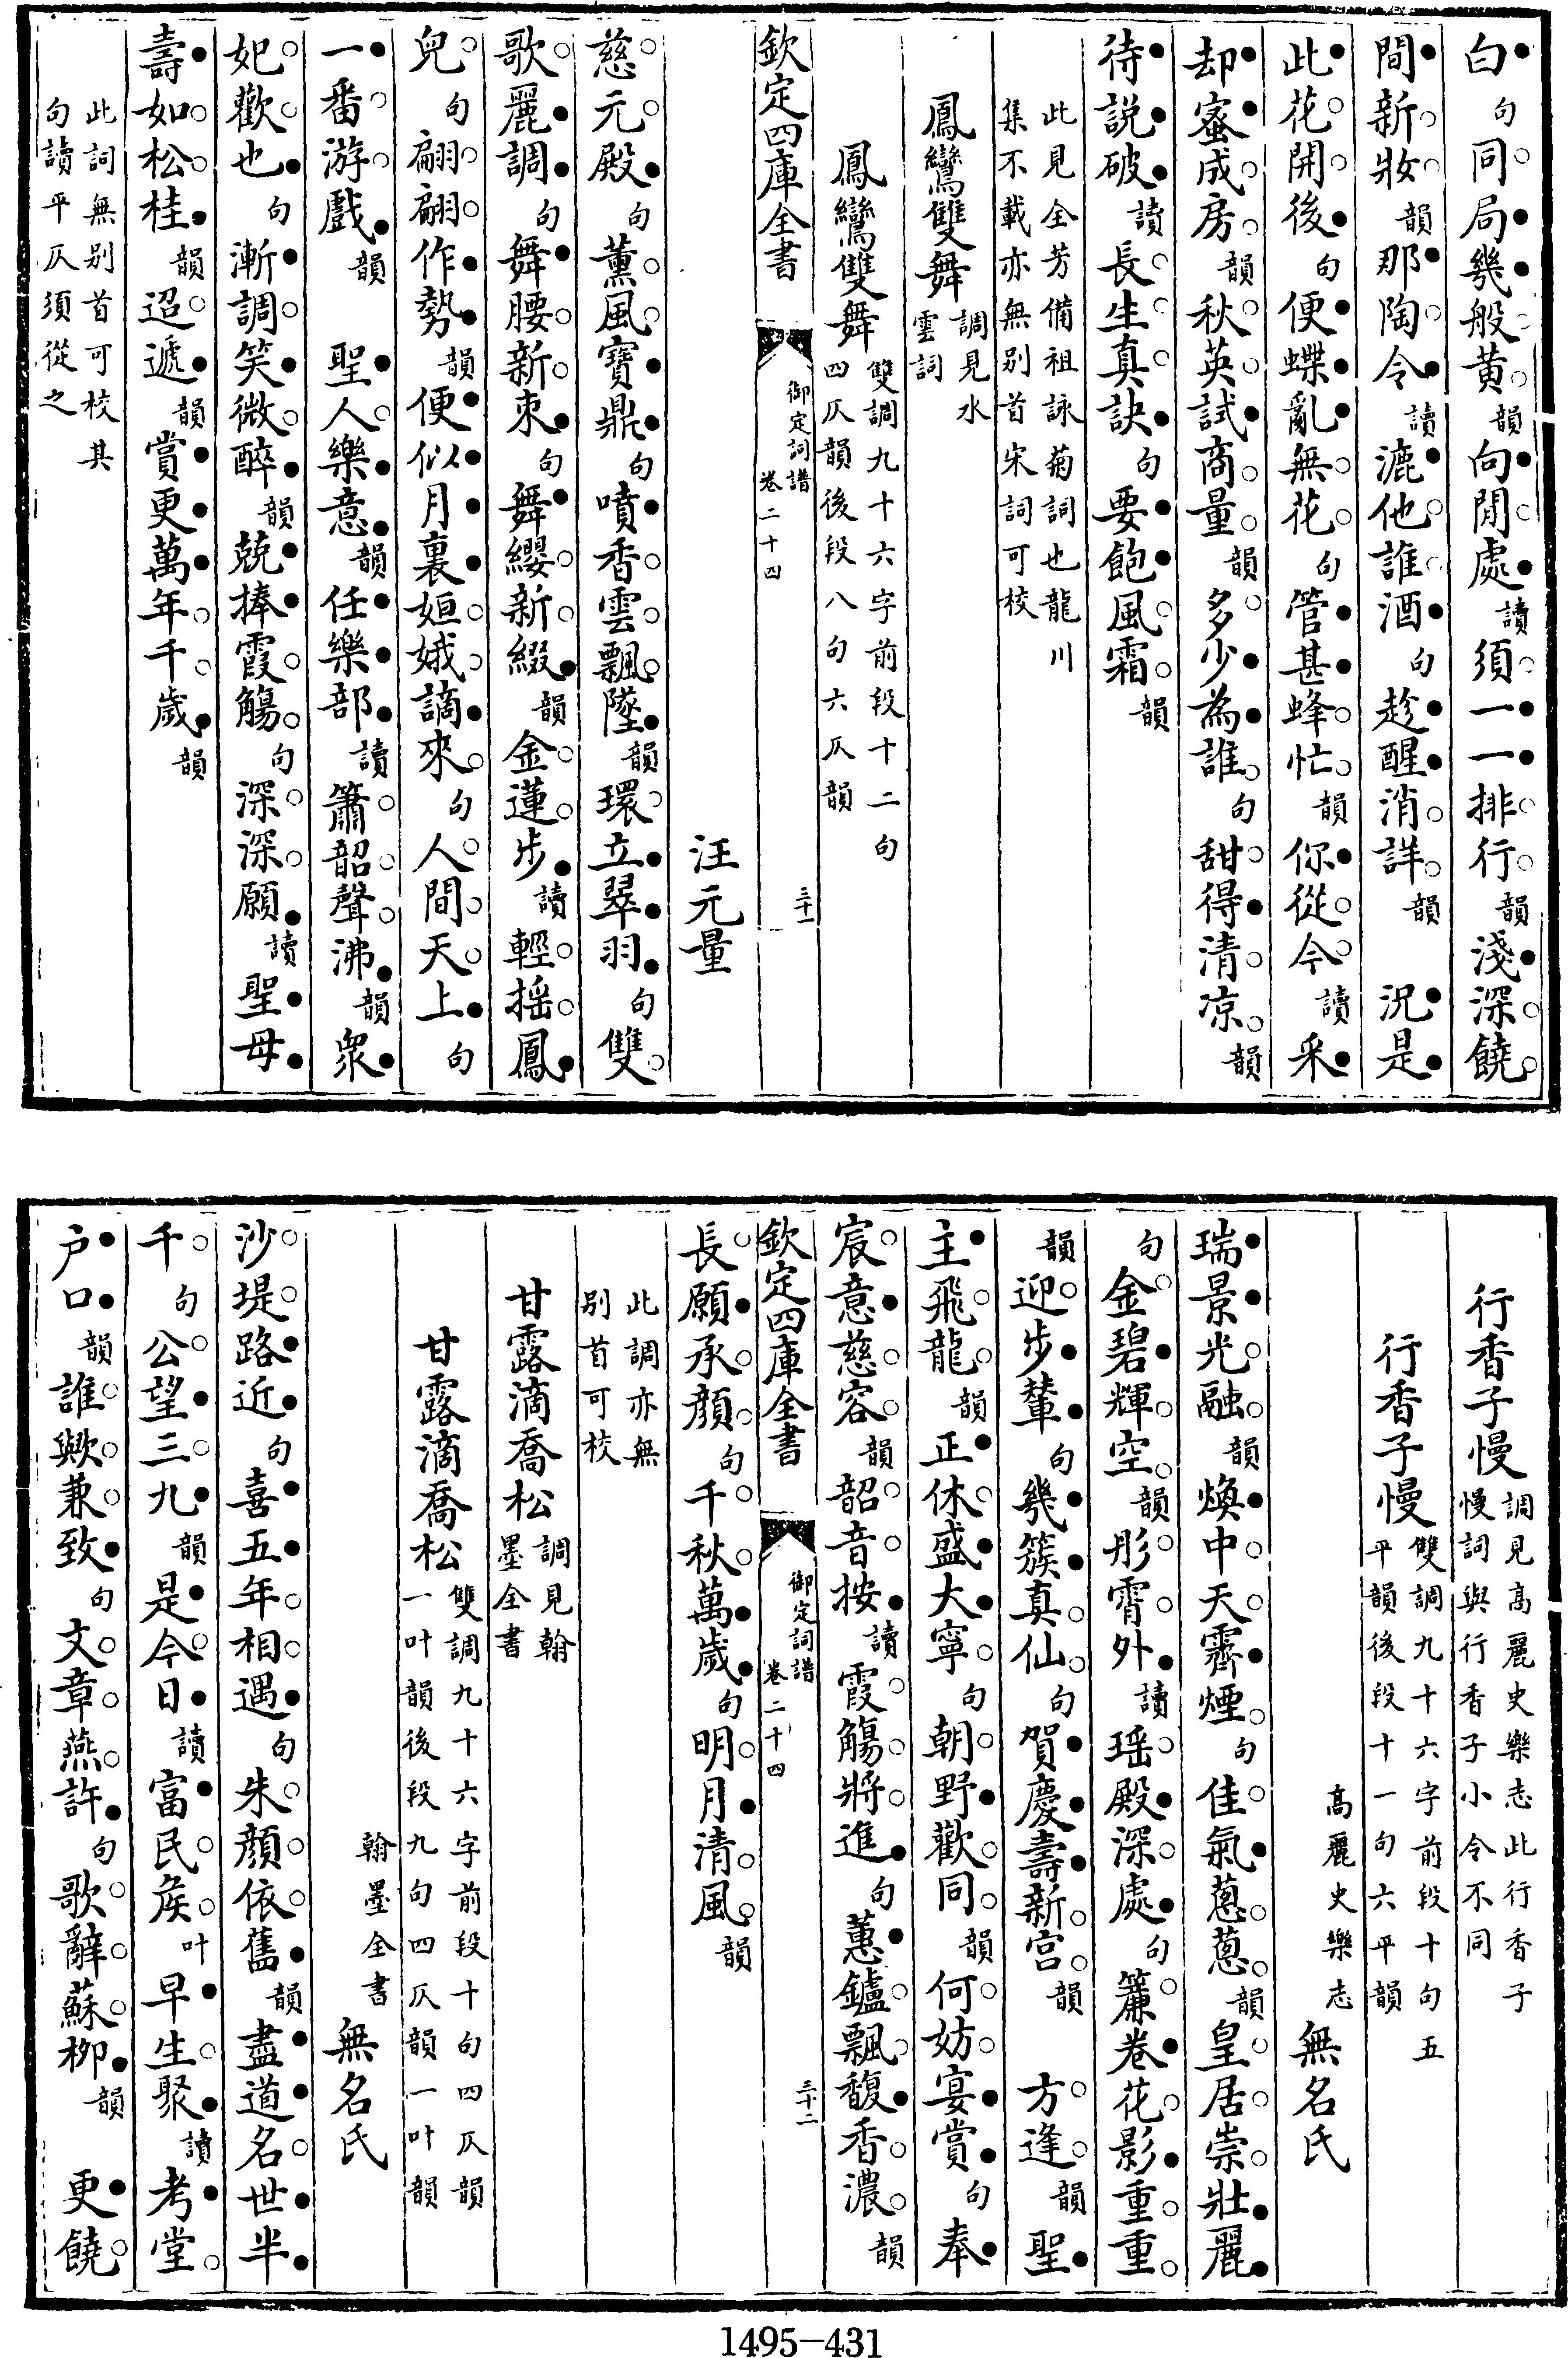 白句同局幾般黄韻向閒處讀須一一排行韻淺深饒
間新妝韻那陶令讀漉他誰酒句趁醒消詳韻　況是
此花開後句便蝶亂無花句管甚蜂忙韻你從今讀采
却蜜成房韻秋英試商量韻多少為誰句甜得清凉韻
待說破讀長生真訣句要飽風霜韻
此見全芳備祖詠菊詞也龍川
集不載亦無别首宋詞可校
鳳鸞雙舞調見水
雲詞
鳳鸞雙舞雙調九十六字前段十二句
四仄韻後段八句六仄韻
欽定四庫全書
御定詞譜
卷二十四
三十一
汪元量
慈元殿句薰風寶鼎句噴香雲飄墜韻環立翠羽句雙
歌麗調句舞腰新束句舞纓新綴韻金蓮步讀輕摇鳳
兒句翩翩作勢韻便似月裏姮娥謫來句人間天上句
一番游戲韻　聖人樂意韻任樂部讀簫韶聲沸韻衆
妃歡也句漸調笑微醉韻兢捧霞觴句深深願讀聖母
壽如松桂韻迢遞韻賞更萬年千歲韻
此詞無别首可校其
句讀平仄須從之
行香子慢調見高麗史樂志此行香子
慢詞與行香子小令不同
行香子慢雙調九十六字前段十句五
平韻後段十一句六平韻
高麗史樂志　無名氏
瑞景光融韻煥中天霽煙句佳氣蔥蔥韻皇居崇壯麗
句金碧輝空韻彤霄外讀瑶殿深處句簾卷花影重重
韻迎步輦句幾簇真仙句賀慶壽新宫韻　方逢韻聖
主飛龍韻正休盛大寧句朝野歡同韻何妨宴賞句奉
宸意慈容韻韶音按讀霞觴將進句蕙鑪飄馥香濃韻
欽定四庫全書
御定詞譜
卷二十四
三十二
長願承顔句千秋萬歲句明月清風韻
此調亦無
别首可校
甘露滴喬松調見翰
墨全書
甘露滴喬松雙調九十六字前段十句四仄韻
一叶韻後段九句四仄韻一叶韻
翰墨全書　無名氏
沙堤路近句喜五年相遇句朱顔依舊韻盡道名世半
千句公望三九韻是今日讀富民侯叶早生聚讀考堂
户口韻誰歟兼致句文章燕許句歌辭蘇栁韻　更饒
1495-431